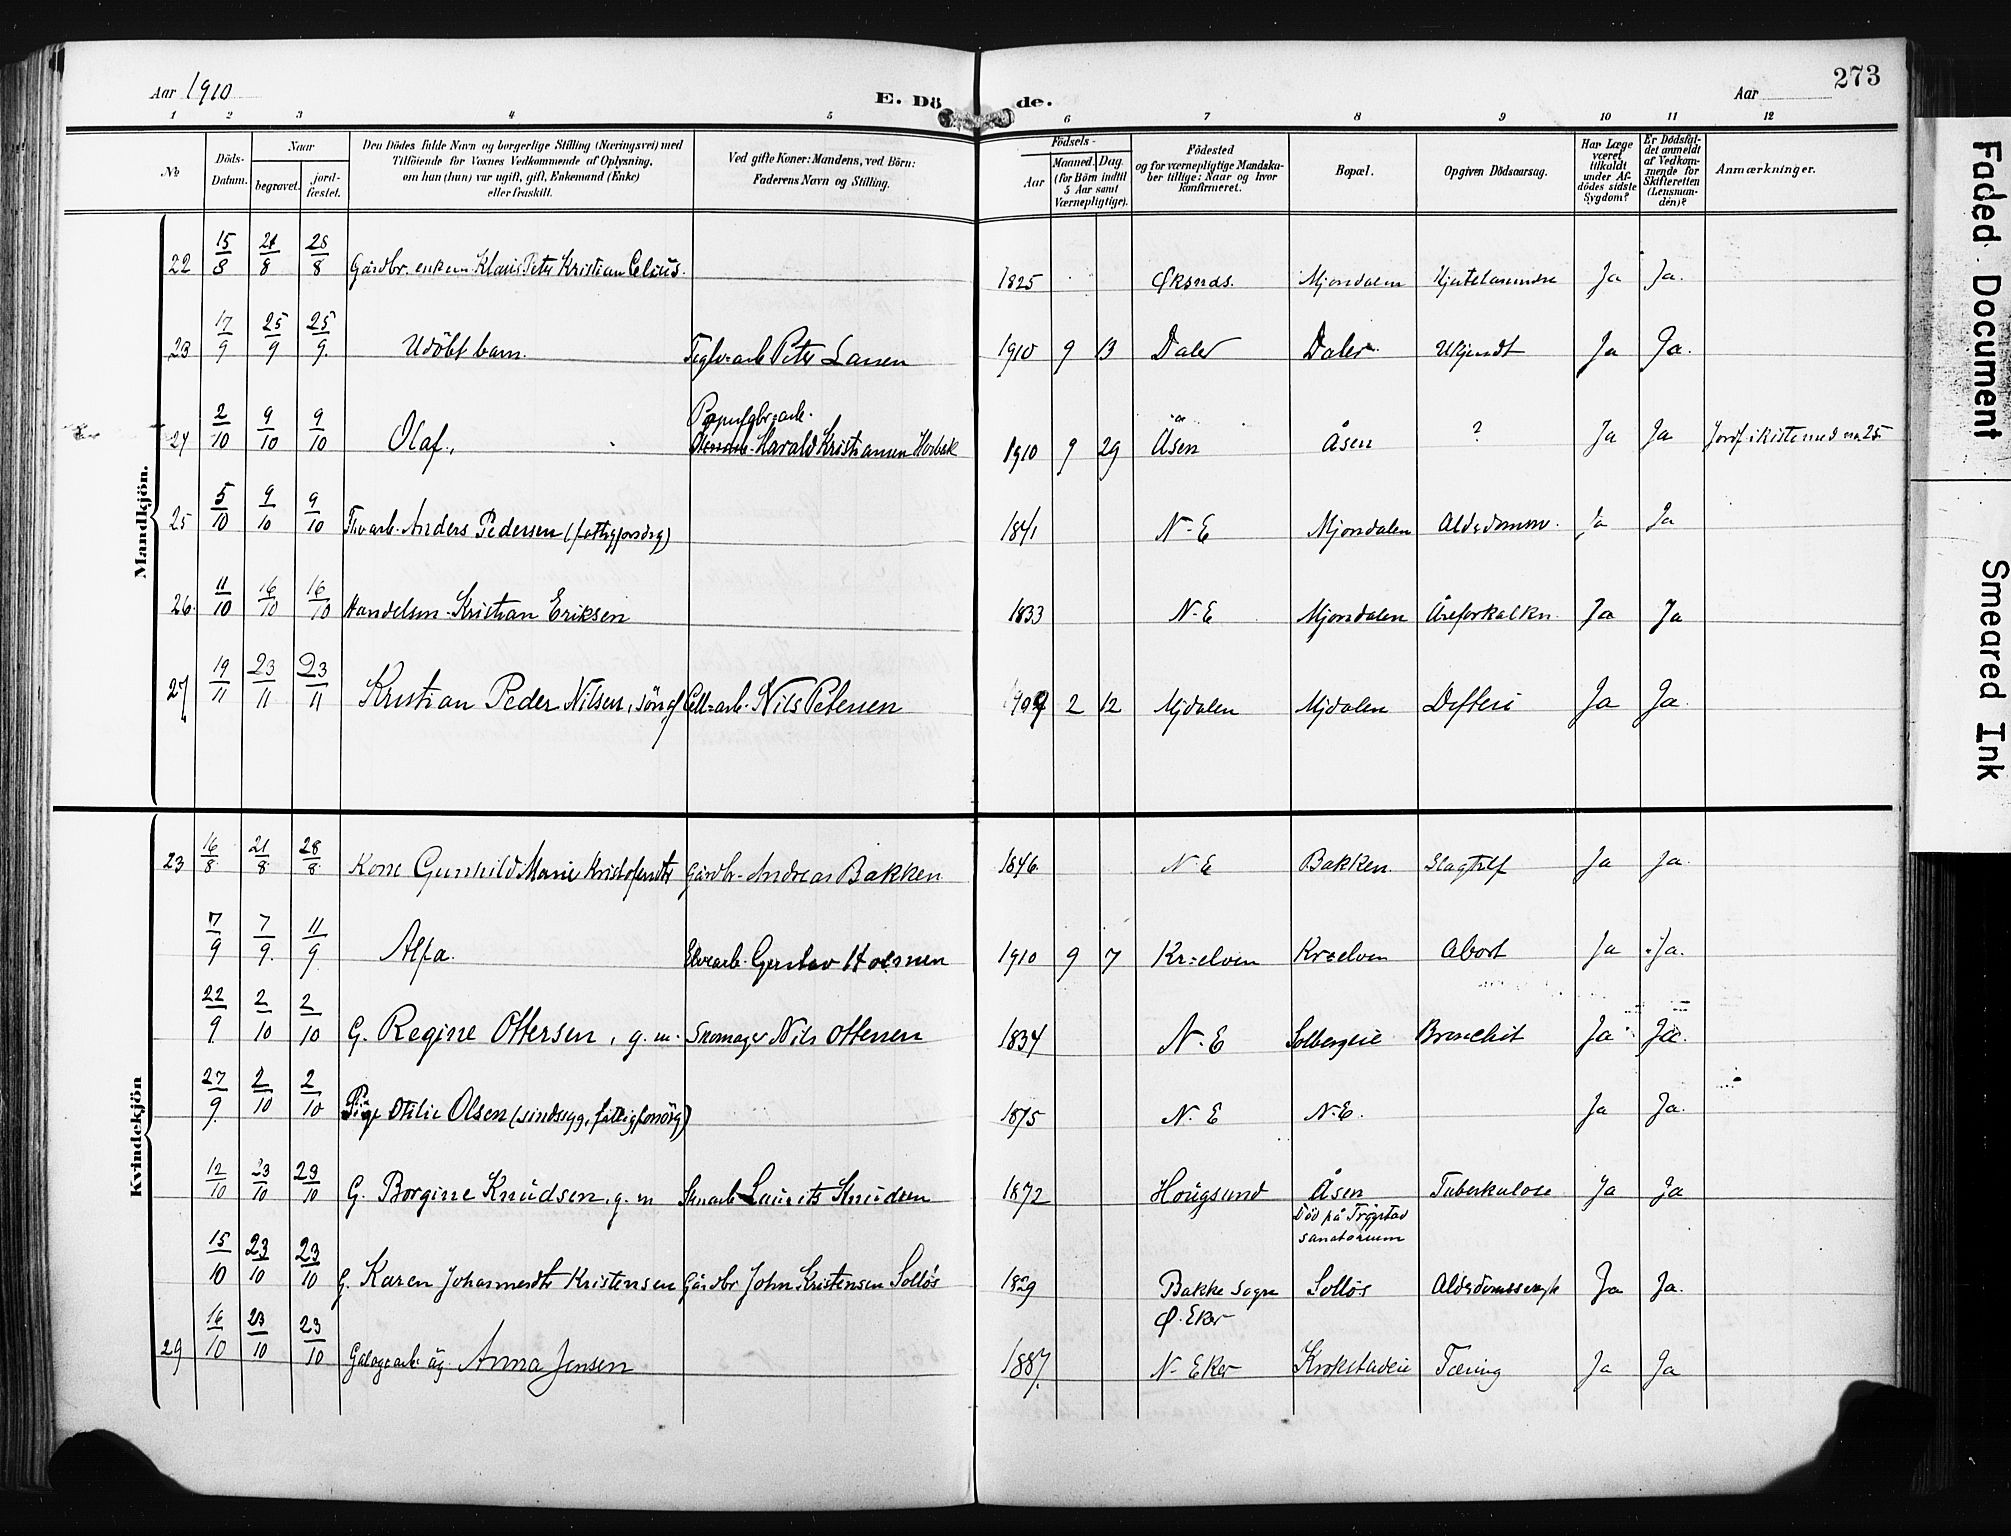 Aar 1910
E. Dö de.
Aar
273
1 2 3 4 5 6 7 8 9 10 11 12
No
Döds-Datum.
Naar
begravet.
jord-fæstet.
Den Dödes fulde Navn og borgerlige Stilling (Næringsvei) med
Tilföiende for Voxnes Vedkommende af Oplysning,
om han (hun) var ugift, gift, Enkemand (Enke)
eller fraskilt.
Ved gifte Koner: Mandens, ved Börn:
Faderens Navn og Stilling.
Födsels-
Aar
Maaned. Dag.
(for Börn indtil
5 Aar samt
Værnepligtige).
Födested
og for værnepligtige Mandska-
ber tillige: Naar og hvor
konfirmeret.
Bopæl.
Opgiven Dödsaarsag.
Har Læge
været
tilkaldt
under Af-
dödes sidste
Sygdom?
Er Dödsfal-
det anmeldt
af Vedkom-
mende for
Skifteretten
(Lensman-
den)?
Anmærkninger.
Mandkjön.
22 15/8 21/8 28/8 Gårdbr. enkem. Klaus Peter Kristian Celius. 1825 Öksnes. Mjöndalen Hjertelammelse Ja Ja.
23 17/9 25/9 25/9. Udöbt barn. Teglv=arb Peter Larsen 1910 9 13 Daler Daler Ukjendt Ja Ja.
24 2/10 9/10 9/10 Olaf., Papirfabr=arb. Harald Kristiansen Horbæk 1910 9 29 Åsen Åsen ? Ja Ja Jordf. i kiste med nr. 25
25 5/10 9/10 9/10 Anders Pedersen (fattigforsörg) 1841 N-E Mjöndalen Alderdomssv. Ja Ja
26. 11/10 16/10 16/10 Handelsm. Kristian Eriksen 1833 N-E Mjöndalen Åreforkalkn. Ja Ja
27 19/11 23/11 23/11 Kristian Peder Nilsen, sön af Cell=arb. Nils Petersen 2 12 Mjdalen Mjdalen Difteri Ja Ja.
Kvindekjön
23 16/8 21/8 28/8 Kone Gunhild Marie Kristofersdtr Gårdbr. Andreas Bakken 1846. N-E Bakken. Slagtilf Ja Ja.
7/9 7/9. 11/9 Alfa. Elvearb. Gustav Hoensen 1910 9 7 Kr=elven Kr=elven Abort Ja Ja.
22/9 2/10 2/10 G. Regine Ottersen, g. m. Skomager Nils Ottersen 1834 N-E Solbergeie Bronchit Ja Ja.
27/9. 2/10 2/10 Pige Otilie Olsen (sindssyg, fattigforsörg) 1875 N-E N-E. Ja Ja.
12/10 23/10 23/10 G. Borgine Knudsen. g. m Laurits Knudsen 1872 Hougsund Åsen
Död på Trögstad
sanatorium Tuberkulose Ja Ja
15/10 23/10 23/10 G. Karen Johannesdtr Kristensen Gårdbr John Kristensen Solløs 1829 Bakke Sogn
Ø. Eker Solløs Alderdomssvagh Ja Ja.
29 16/10 23/10 23/10 Anna Jensen 1887. N-Eker Krokstadeie Tæring Ja Ja
Faded Document
Smeared Ink